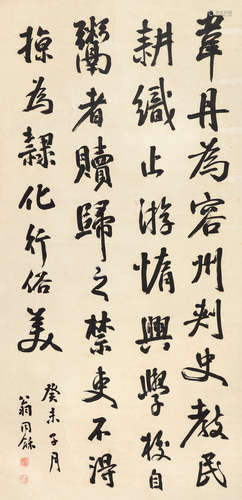 韋丹為容州刺史教民
耕織止游惰興學校自
鬻者贖歸之禁吏不得
掠為隸化行俗美
癸未子月
翁同龢